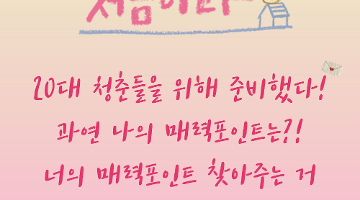 20대 청춘들을 위해 준비했다!
과연 나의 매력포인트는?!
너의 매력포인트 찾아주는 거